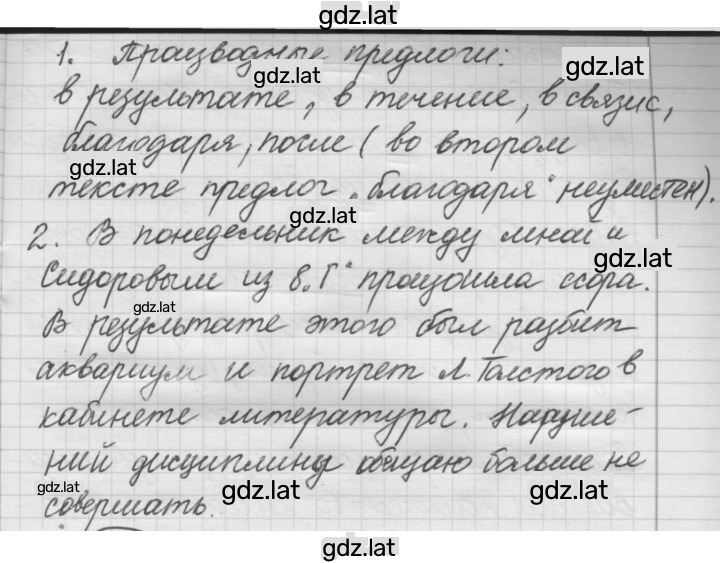 gdz.lat
1. Производные предлоги:
gdz.lat
gdz.lat
в результате, в течение, в связи с,
благодаря, после (во втором
gdz.lat
тексте предлог „благодаря“ неуместен).
gdz.lat
2. В понедельник между мной и
gdz.lat
Сидоровым из 8 „Г“ произошла ссора.
gdz.lat
В результате этого был разбит
аквариум и портрет Л. Толстого в
кабинете литературы. Наруше-
ний дисциплины обещаю больше не
gdz.lat gdz.lat gdz.lat
совершать.
gdz.lat